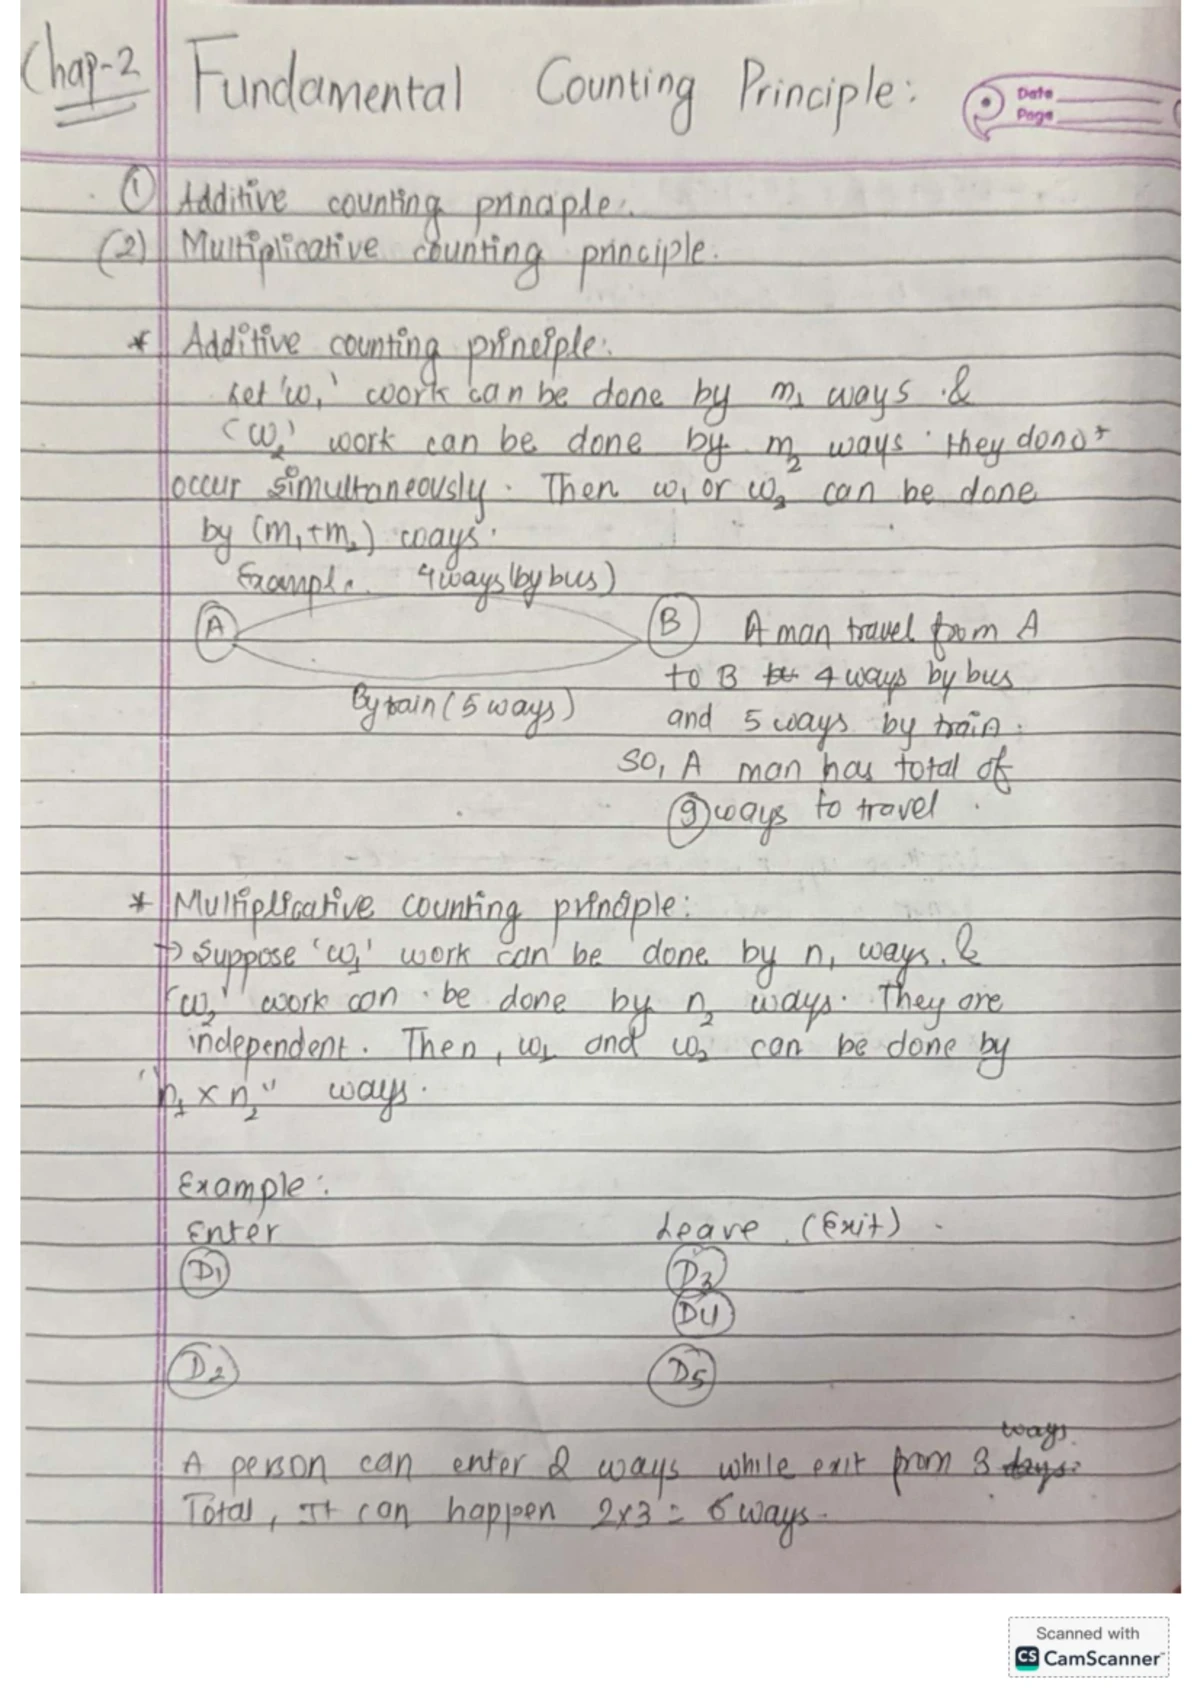 Chap-2 Fundamental Counting Principle:
Date
Page
① Additive counting principle.
(2) Multiplicative counting principle.
* Additive counting principle:
Let 'w₁' work can be done by m₁ ways &
'w₂' work can be done by m₂ ways. they donot
occur simultaneously. Then w₁ or w₂ can be done
by (m₁+m₂) ways.
Example. 4 ways (by bus)
A B A man travel from A
to B 4 ways by bus
By rain (5 ways) and 5 ways by train.
So, A man has total of
9 ways to travel.
* Multiplicative counting principle:
→ Suppose 'w₁' work can be done by n₁ ways. &
'w₂' work can be done by n₂ ways. They are
independent. Then, w₁ and w₂ can be done by
"n₁ × n₂" ways.
Example:
Enter Leave (Exit).
D₁ D₃
D₄
D₂ D₅
ways.
A person can enter 2 ways while exit from 3 days.
Total, It can happen 2×3 = 6 ways.
Scanned with
CS CamScanner